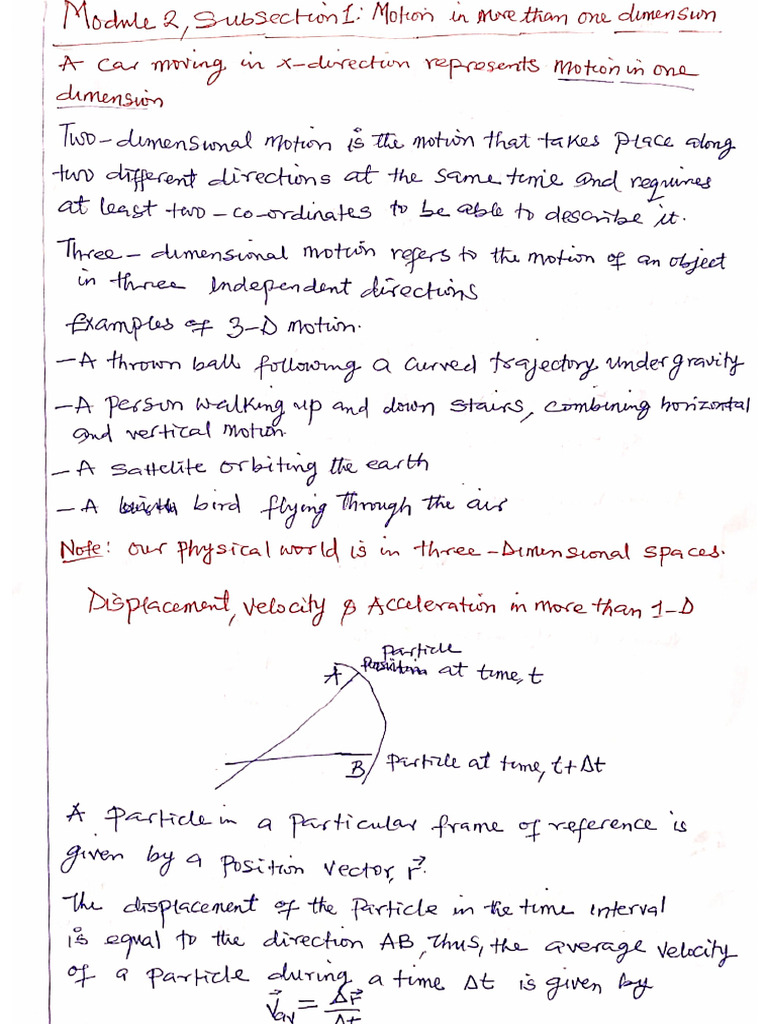 Module 2, Subsection 1: Motion in more than one dimension
A car moving in x-direction represents motion in one
dimension
Two-dimensional motion is the motion that takes place along
two different directions at the same time and requires
at least two-co-ordinates to be able to describe it.
Three-dimensional motion refers to the motion of an object
in three independent directions
Examples of 3-D motion.
- A thrown ball following a curved trajectory under gravity
- A person walking up and down stairs, combining horizontal
and vertical motion
- A sattelite orbiting the earth
- A bird flying through the air
Note: our physical world is in three-dimensional spaces.
Displacement, velocity & Acceleration in more than 1-D
particle
A at time, t
B particle at time, t+Δt
A particle in a particular frame of reference is
given by a position vector, r⃗.
The displacement of the particle in the time interval
is equal to the direction AB, thus, the average velocity
of a particle during a time Δt is given by
V⃗av = Δr⃗/Δt